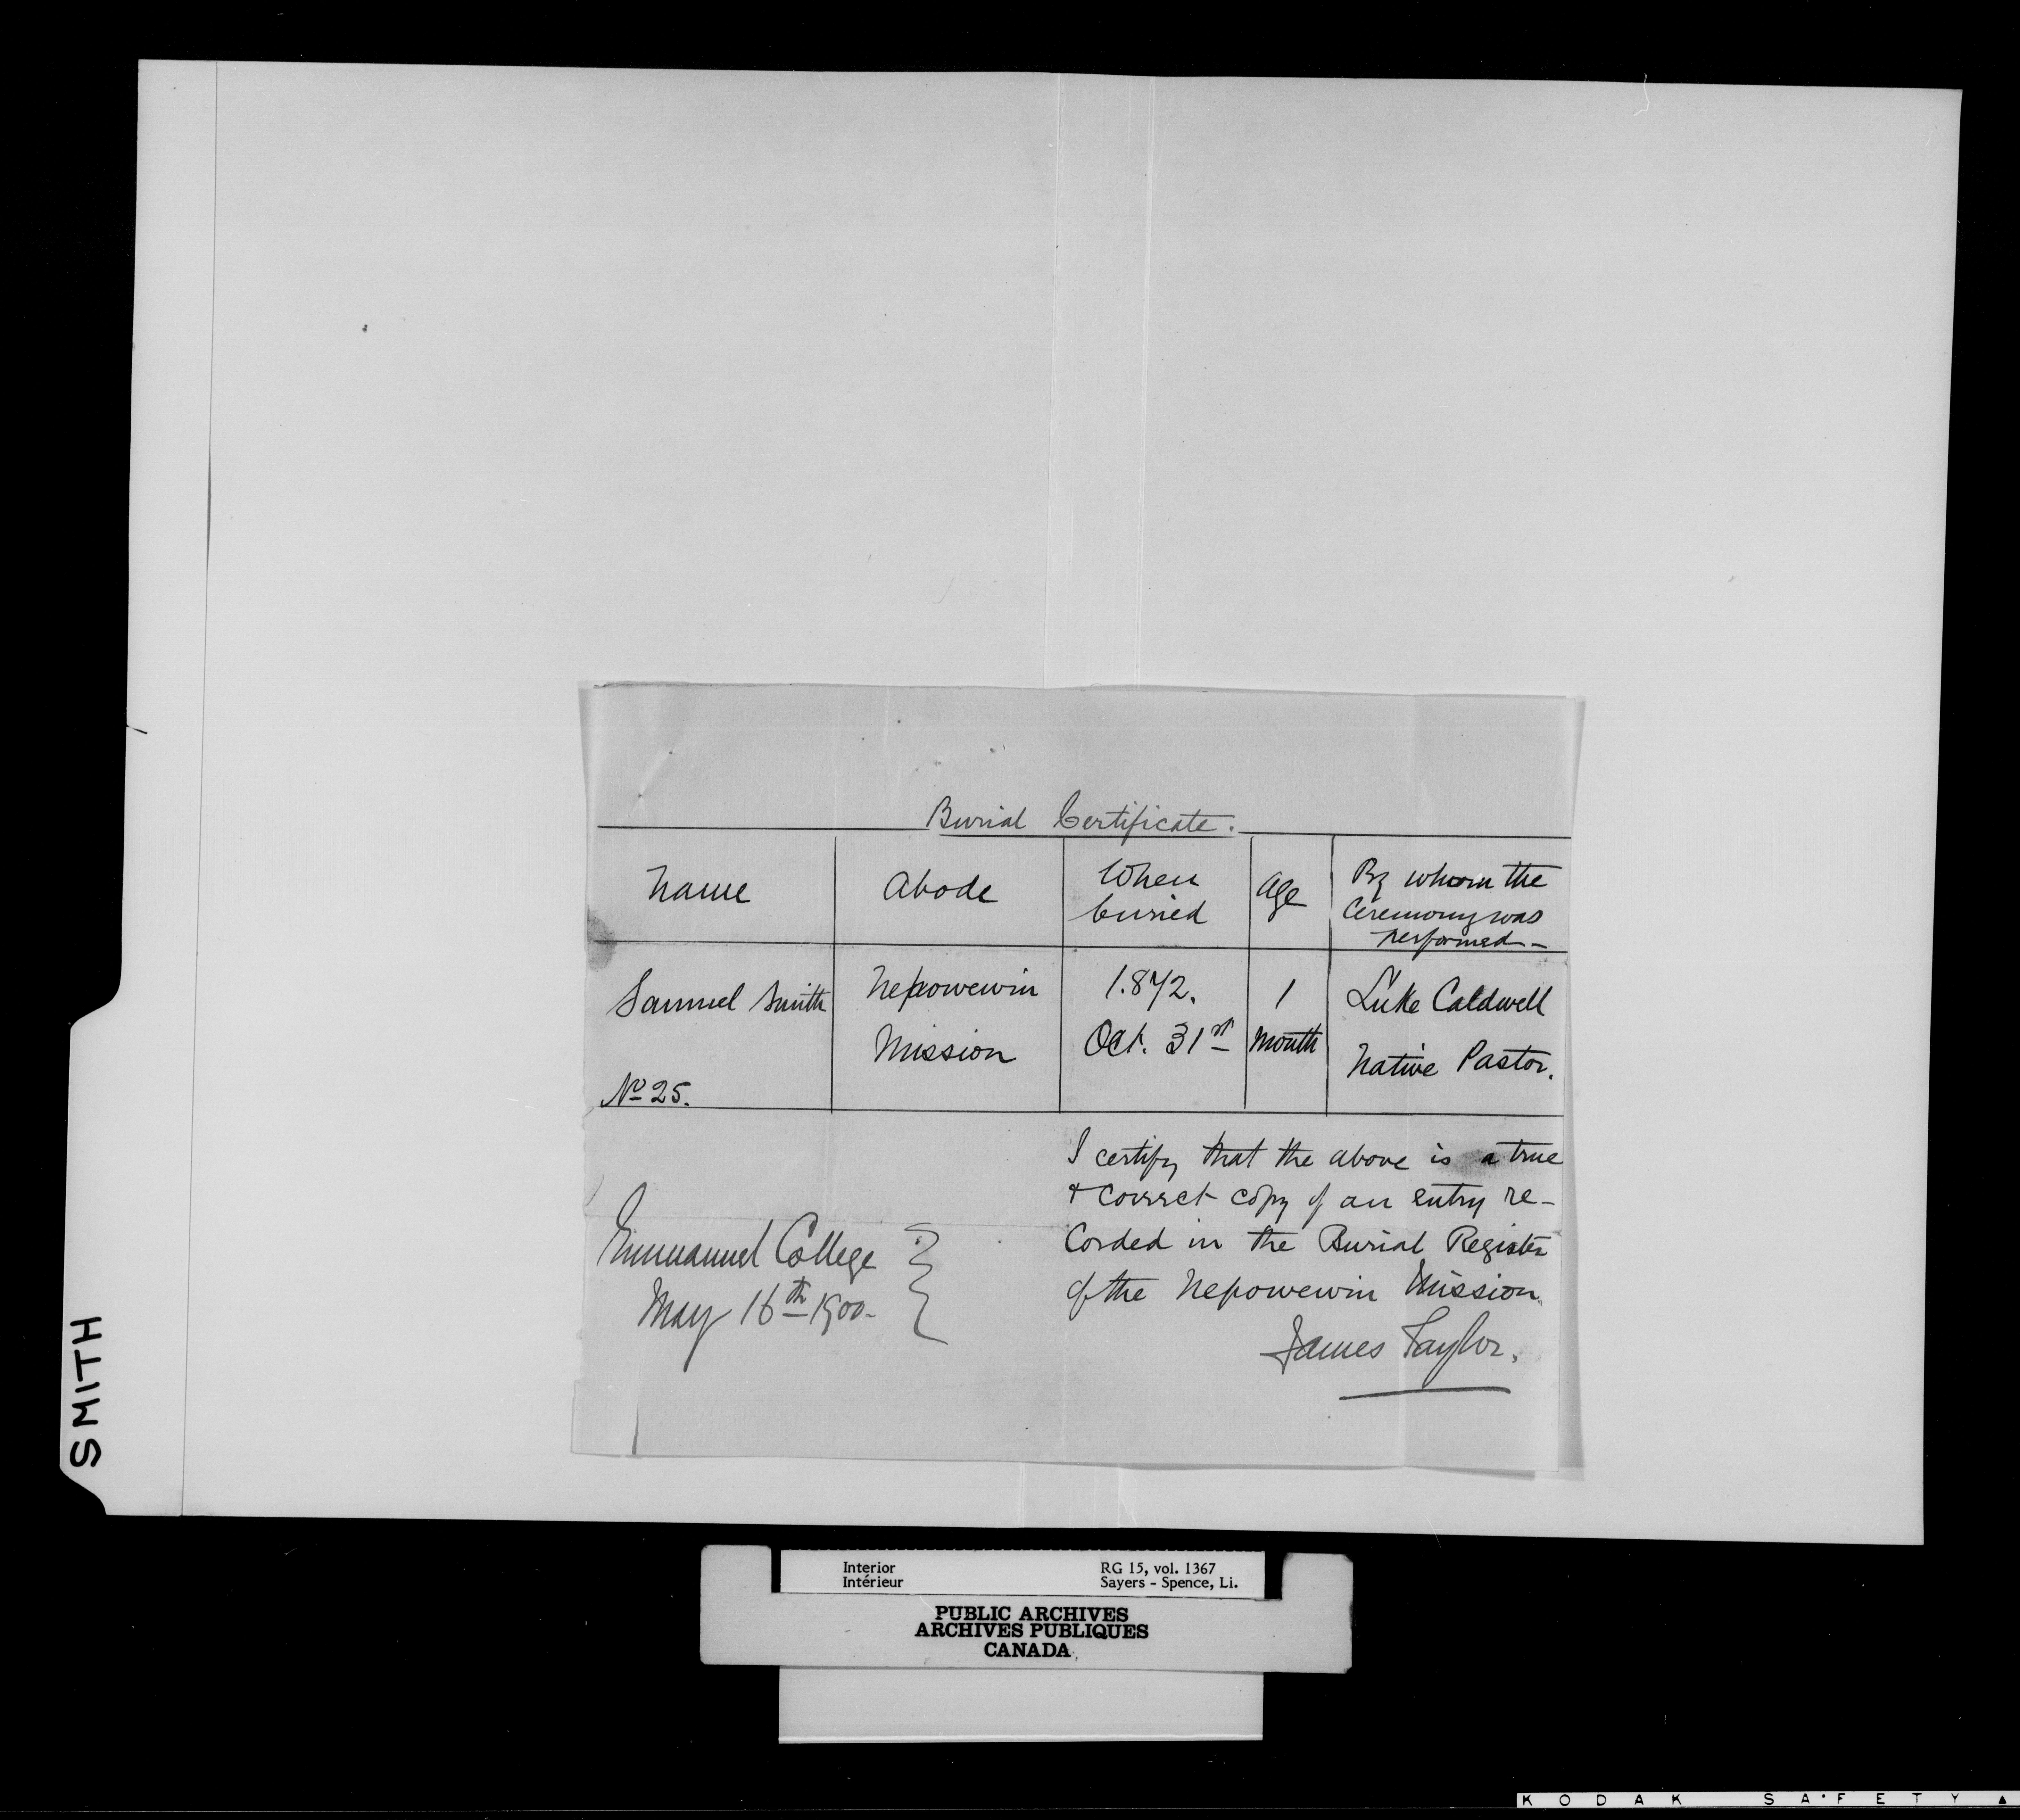 SMITH
Burial Certificate.
Name
Abode
When
buried
Age
By whom the
Ceremony was
performed -
Samuel Smith
No 25.
Nepowewin
Mission
1.872.
Oct. 31st
1
Month
Luke Caldwell
Native Pastor.
I certify that the above is a true
& correct copy of an entry re-
corded in the Burial Register
of the Nepowewin Mission.
James Taylor.
Emmanuel College
May 16th 1900-
Interior
Intérieur
RG 15, vol. 1367
Sayers - Spence, Li.
PUBLIC ARCHIVES
ARCHIVES PUBLIQUES
CANADA
KODAK SA·FETY ▲